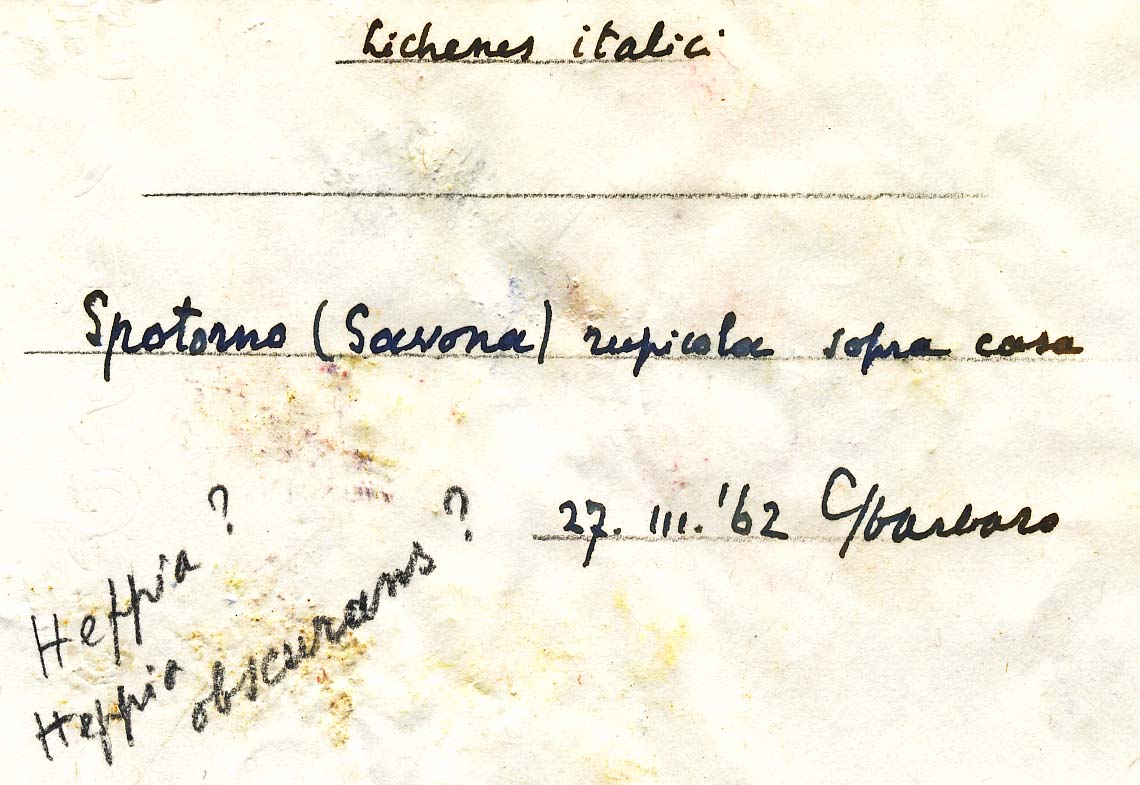 Lichenes italici
Spotorno (Savona) rupicola sopra casa
27. III. '62 C/barbaro
Heppia ?
Heppia obscurans ?